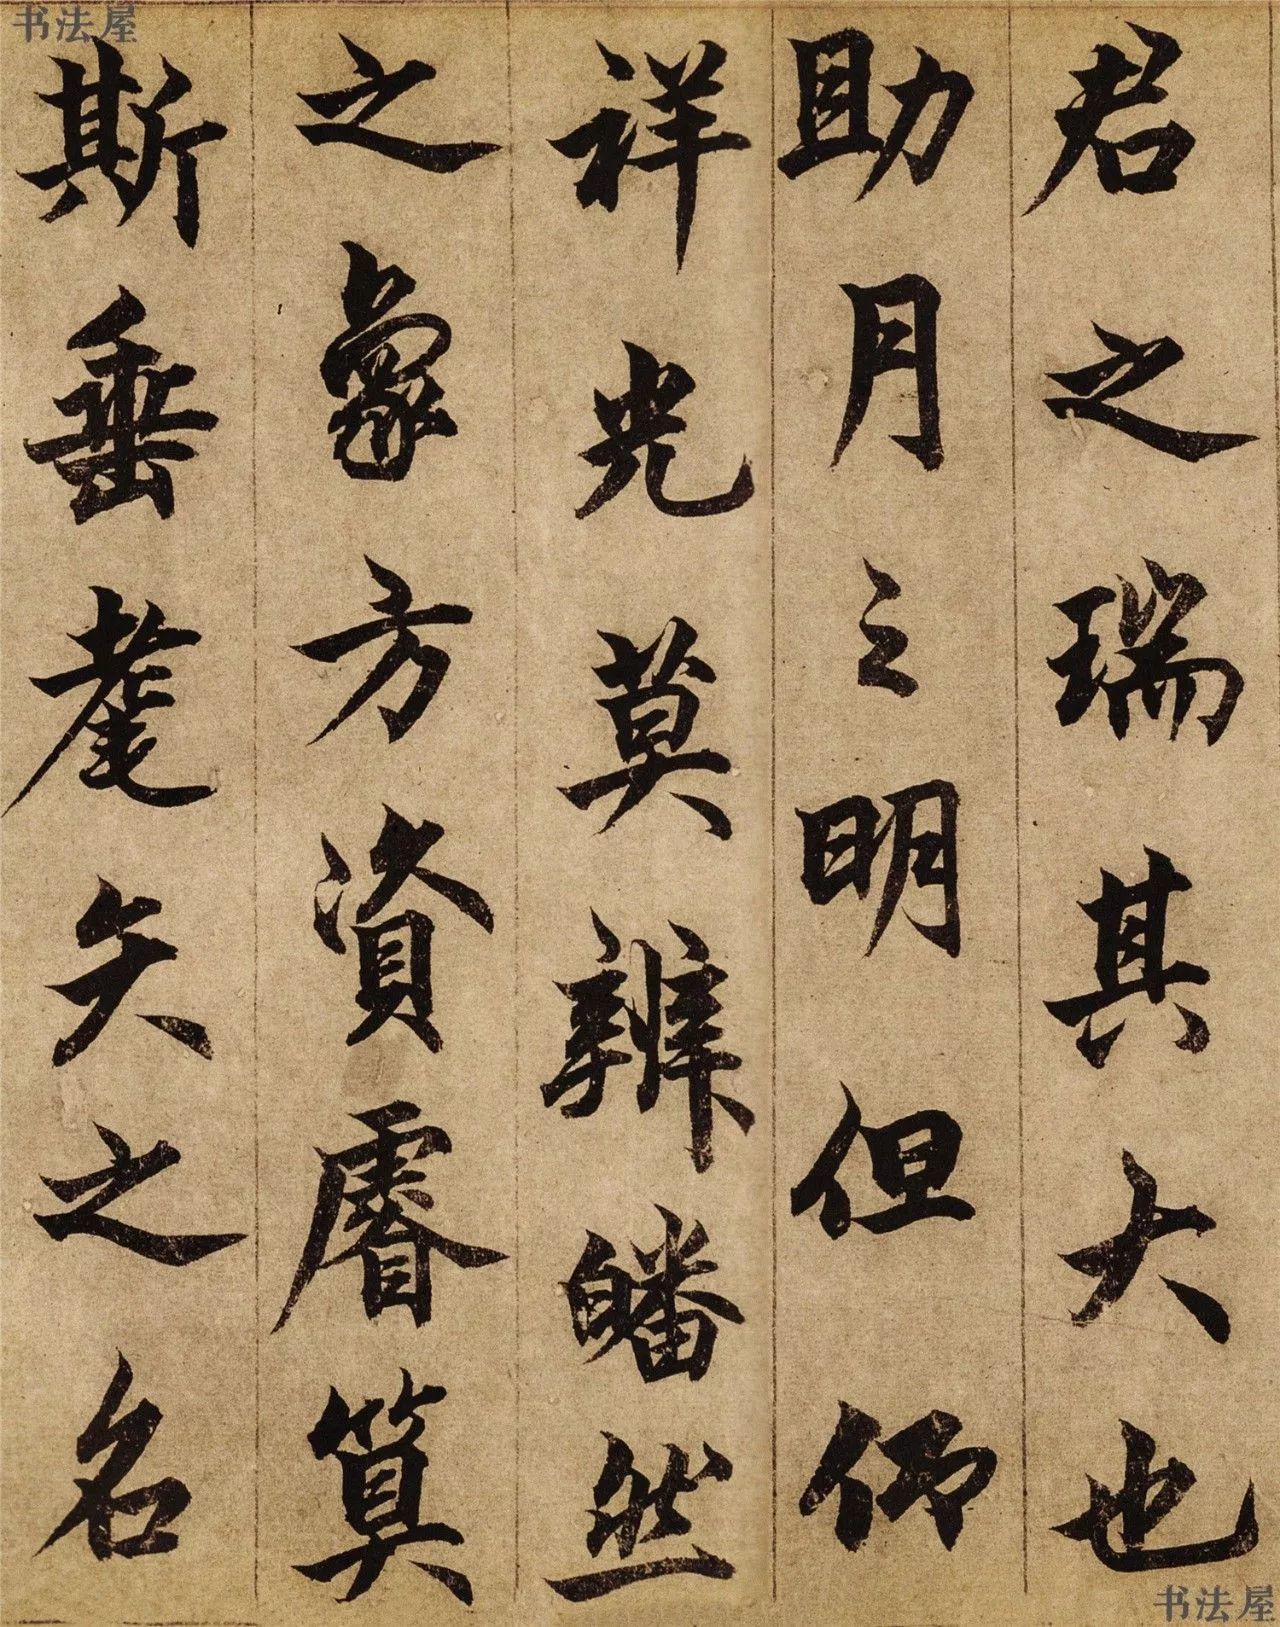 书法屋
君之瑞其大也
助月之明但仰
祥光莫辨皤然
之象方資睿算
斯垂耄矣之名
书法屋